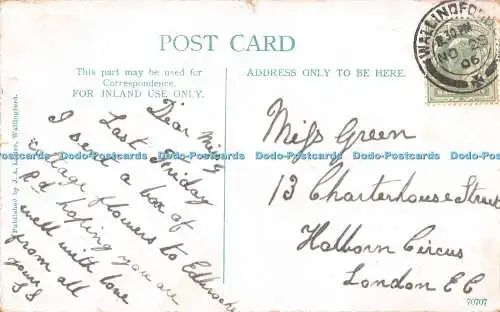 POST CARD
This part may be used for
Correspondence.
FOR INLAND USE ONLY.
ADDRESS ONLY TO BE HERE.
WALLINGFORD
8.30 PM
NO 23
06
Dear Miss
Last Friday
I send a box of
cottage flowers to
Rd hoping you are
well with love
from all
yours
Miss Green
13 Charterhouse Street
Holborn Circus
London E C
70707
Published by J. A. Wallingford.
Dodo-Postcards Dodo-Postcards Dodo-Postcards Dodo-Postcards Dodo-Postcards